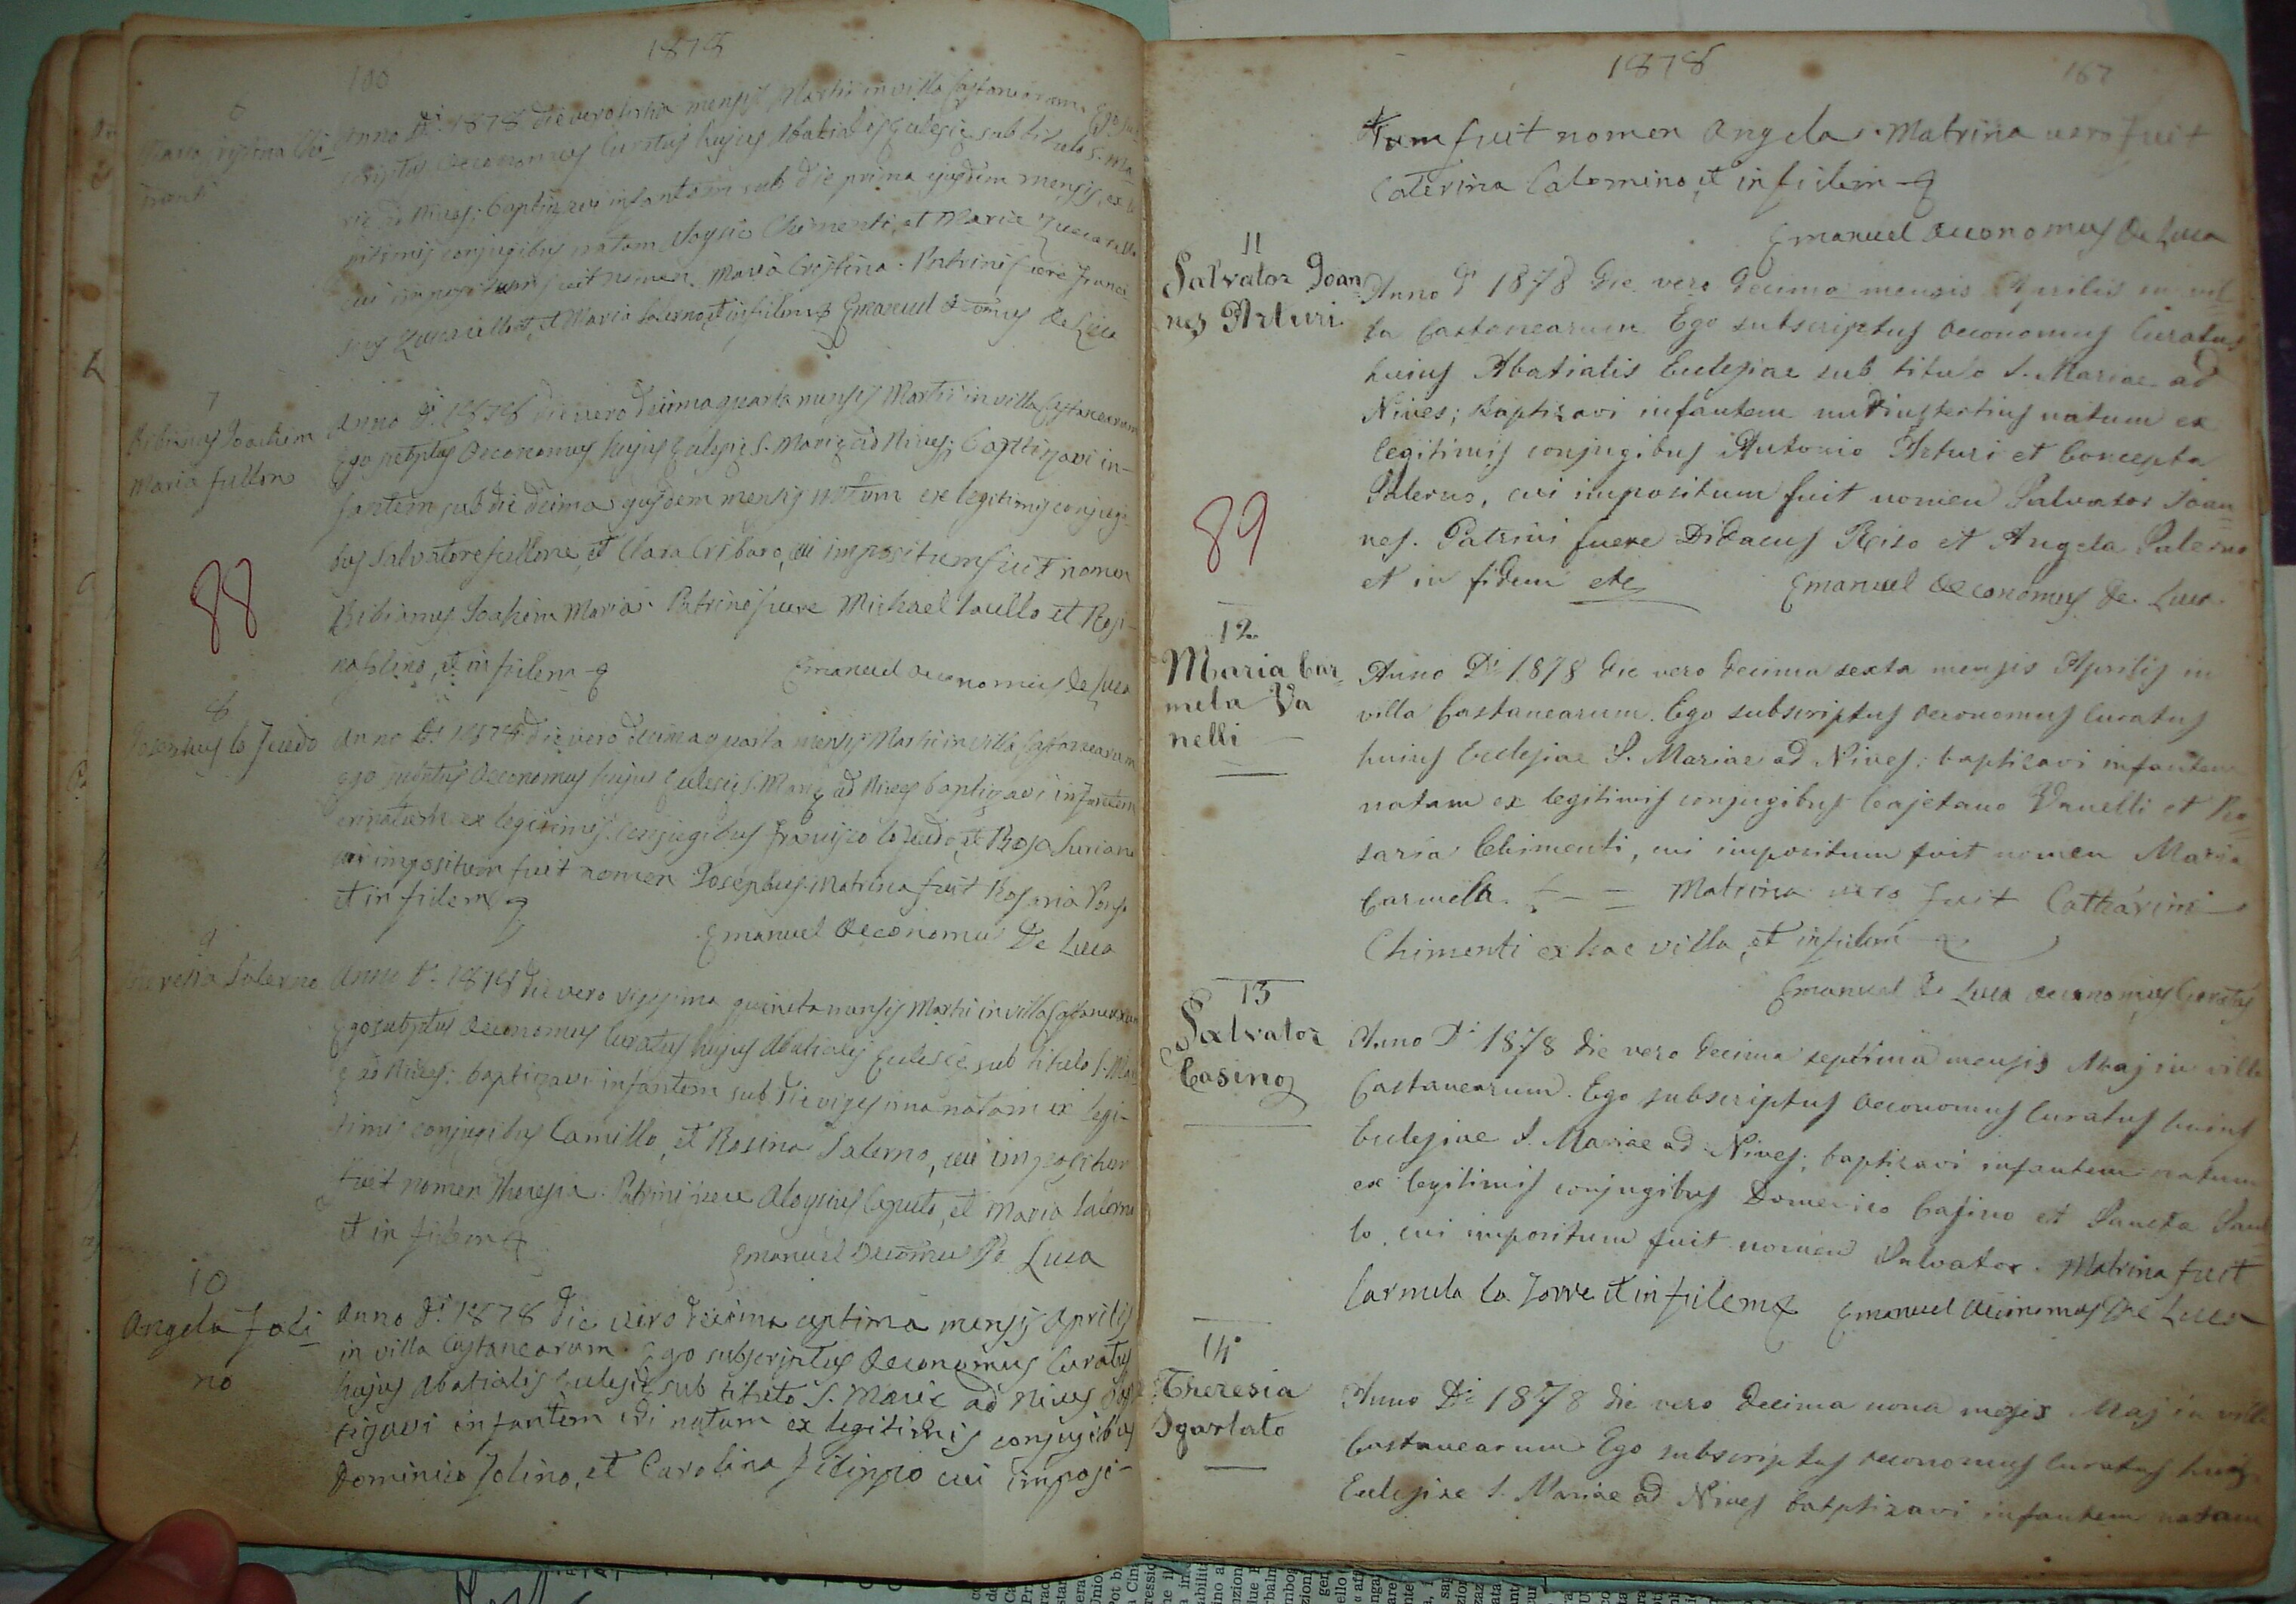 1878
6
Anno D.i 1878 die vero tertia mensis Martii in villa Castanearum Ego sub-
scriptus Oeconomus Curatus hujus Abatialis Eclesie sub titulo S. Ma-
rie ad Nives; baptizavi infantem sub die prima ejusdem mensis, ex le-
gitimis conjugibus natam Aloysio Chimenti, et Maria
cui impositum fuit nomen Maria Cristina. Patrini fuere Franci-
et Maria Salerno, et in fidem Emanuel De Luca
7
Bibianus Joachim
Maria Fullone
Anno D.i 1878 die vero decima quarta mensis Martii in villa Castanearum
Ego Oeconomus hujus Eclesie S. Marie ad Nives; baptizavi in-
fantem sub die decima ejusdem mensis natum ex legitimis conjugi-
bus Salvatore Fullone, et Clara Cribaro, cui impositum fuit nomen
Bibianus Joakim Maria. Patrini fuere Michael Iaullo et Rosi-
et in fidem
Emanuel Oeconomus De Luca
88
8
Josephus lo Feudo
Anno D.i 1878 die vero decima quarta mensis Martii in villa Castanearum
Ego Oeconomus hujus Eclesie S. Marie ad Nives baptizavi infantem
natum ex legitimis conjugibus Francisco lo Feudo, et Rosa Suriano
cui impositum fuit nomen Josephus. Matrina fuit Rosaria
et in fidem
Emanuel Oeconomus De Luca
9
Theresia Salerno
Anno D.i 1878 die vero vigesima quinta mensis Martii in villa Castanearum
Ego Oeconomus Curatus hujus Abatialis Eclesie sub titulo S. Mari-
e ad Nives: baptizavi infantem sub die vigesima natam ex legi-
timis conjugibus Camillo, et Rosina Salerno, cui impositum
fuit nomen Theresia. Patrini fuere Aloysius Caputo, et Maria Salerno
et in fidem
Emanuel De Luca
10
Angela Joli-
no
Anno D.i 1878 die vero decima septima mensis Aprilis
in villa Castanearum. Ego subscriptus Oeconomus Curatus
hujus Abatialis Eclesie sub titulo S. Marie ad Nives bap-
tizavi infantem natam ex legitimis conjugibus
Dominico Jolino, et Carolina Filippo cui imposi-
1878
167
tum fuit nomen Angela. Matrina vero fuit
Caterina Calomino, et in fidem
Emanuel Oeconomus De Luca
11
Salvator Joan-
nes Arturi
Anno D.i 1878 die vero decimo mensis Aprilis in vil-
la Castanearum Ego subscriptus Oeconomus Curatus
huius Abatialis Eclesiae sub titulo S. Mariae ad
Nives; Baptizavi infantem nudiustertius natum ex
legitimis conjugibus Antonio Arturi et Concepta
Salerno, cui impositum fuit nomen Salvator Joan-
nes. Patrini fuere Didacus Riso et Angela Salerno
et in fidem etc
Emanuel Oeconomus De Luca
89
12
Maria Car-
mela Va
nelli
Anno D.i 1878 die vero decima sexta mensis Aprilis in
villa Castanearum. Ego subscriptus oeconomus curatus
huius Eclesiae S. Mariae ad Nives; baptizavi infantem
natam ex legitimis conjugibus Cajetano Vanelli et Ro-
saria Chimenti, cui impositum fuit nomen Maria
Carmela. Matrina vero fuit Catharina
Chimenti ex hac villa, et in fidem
Emanuel De Luca Oeconomus Curatus
13
Salvator
Casino
Anno D.i 1878 die vero decima septima mensis Maj in villa
Castanearum. Ego subscriptus Oeconomus Curatus huius
Eclesiae S. Mariae ad Nives; baptizavi infantem natum
ex legitimis conjugibus Domenico Casino et Sancta Saul-
lo, cui impositum fuit nomen Salvator. Matrina fuit
Carmela la Torre et in fidem Emanuel Oeconomus De Luca
14
Theresia
Sgarlato
Anno D.i 1878 die vero decima nona mesis Maj in villa
Castanearum Ego subscriptus oeconomus curatus huius
Eclesiae S. Mariae ad Nives batptizavi infantem natam